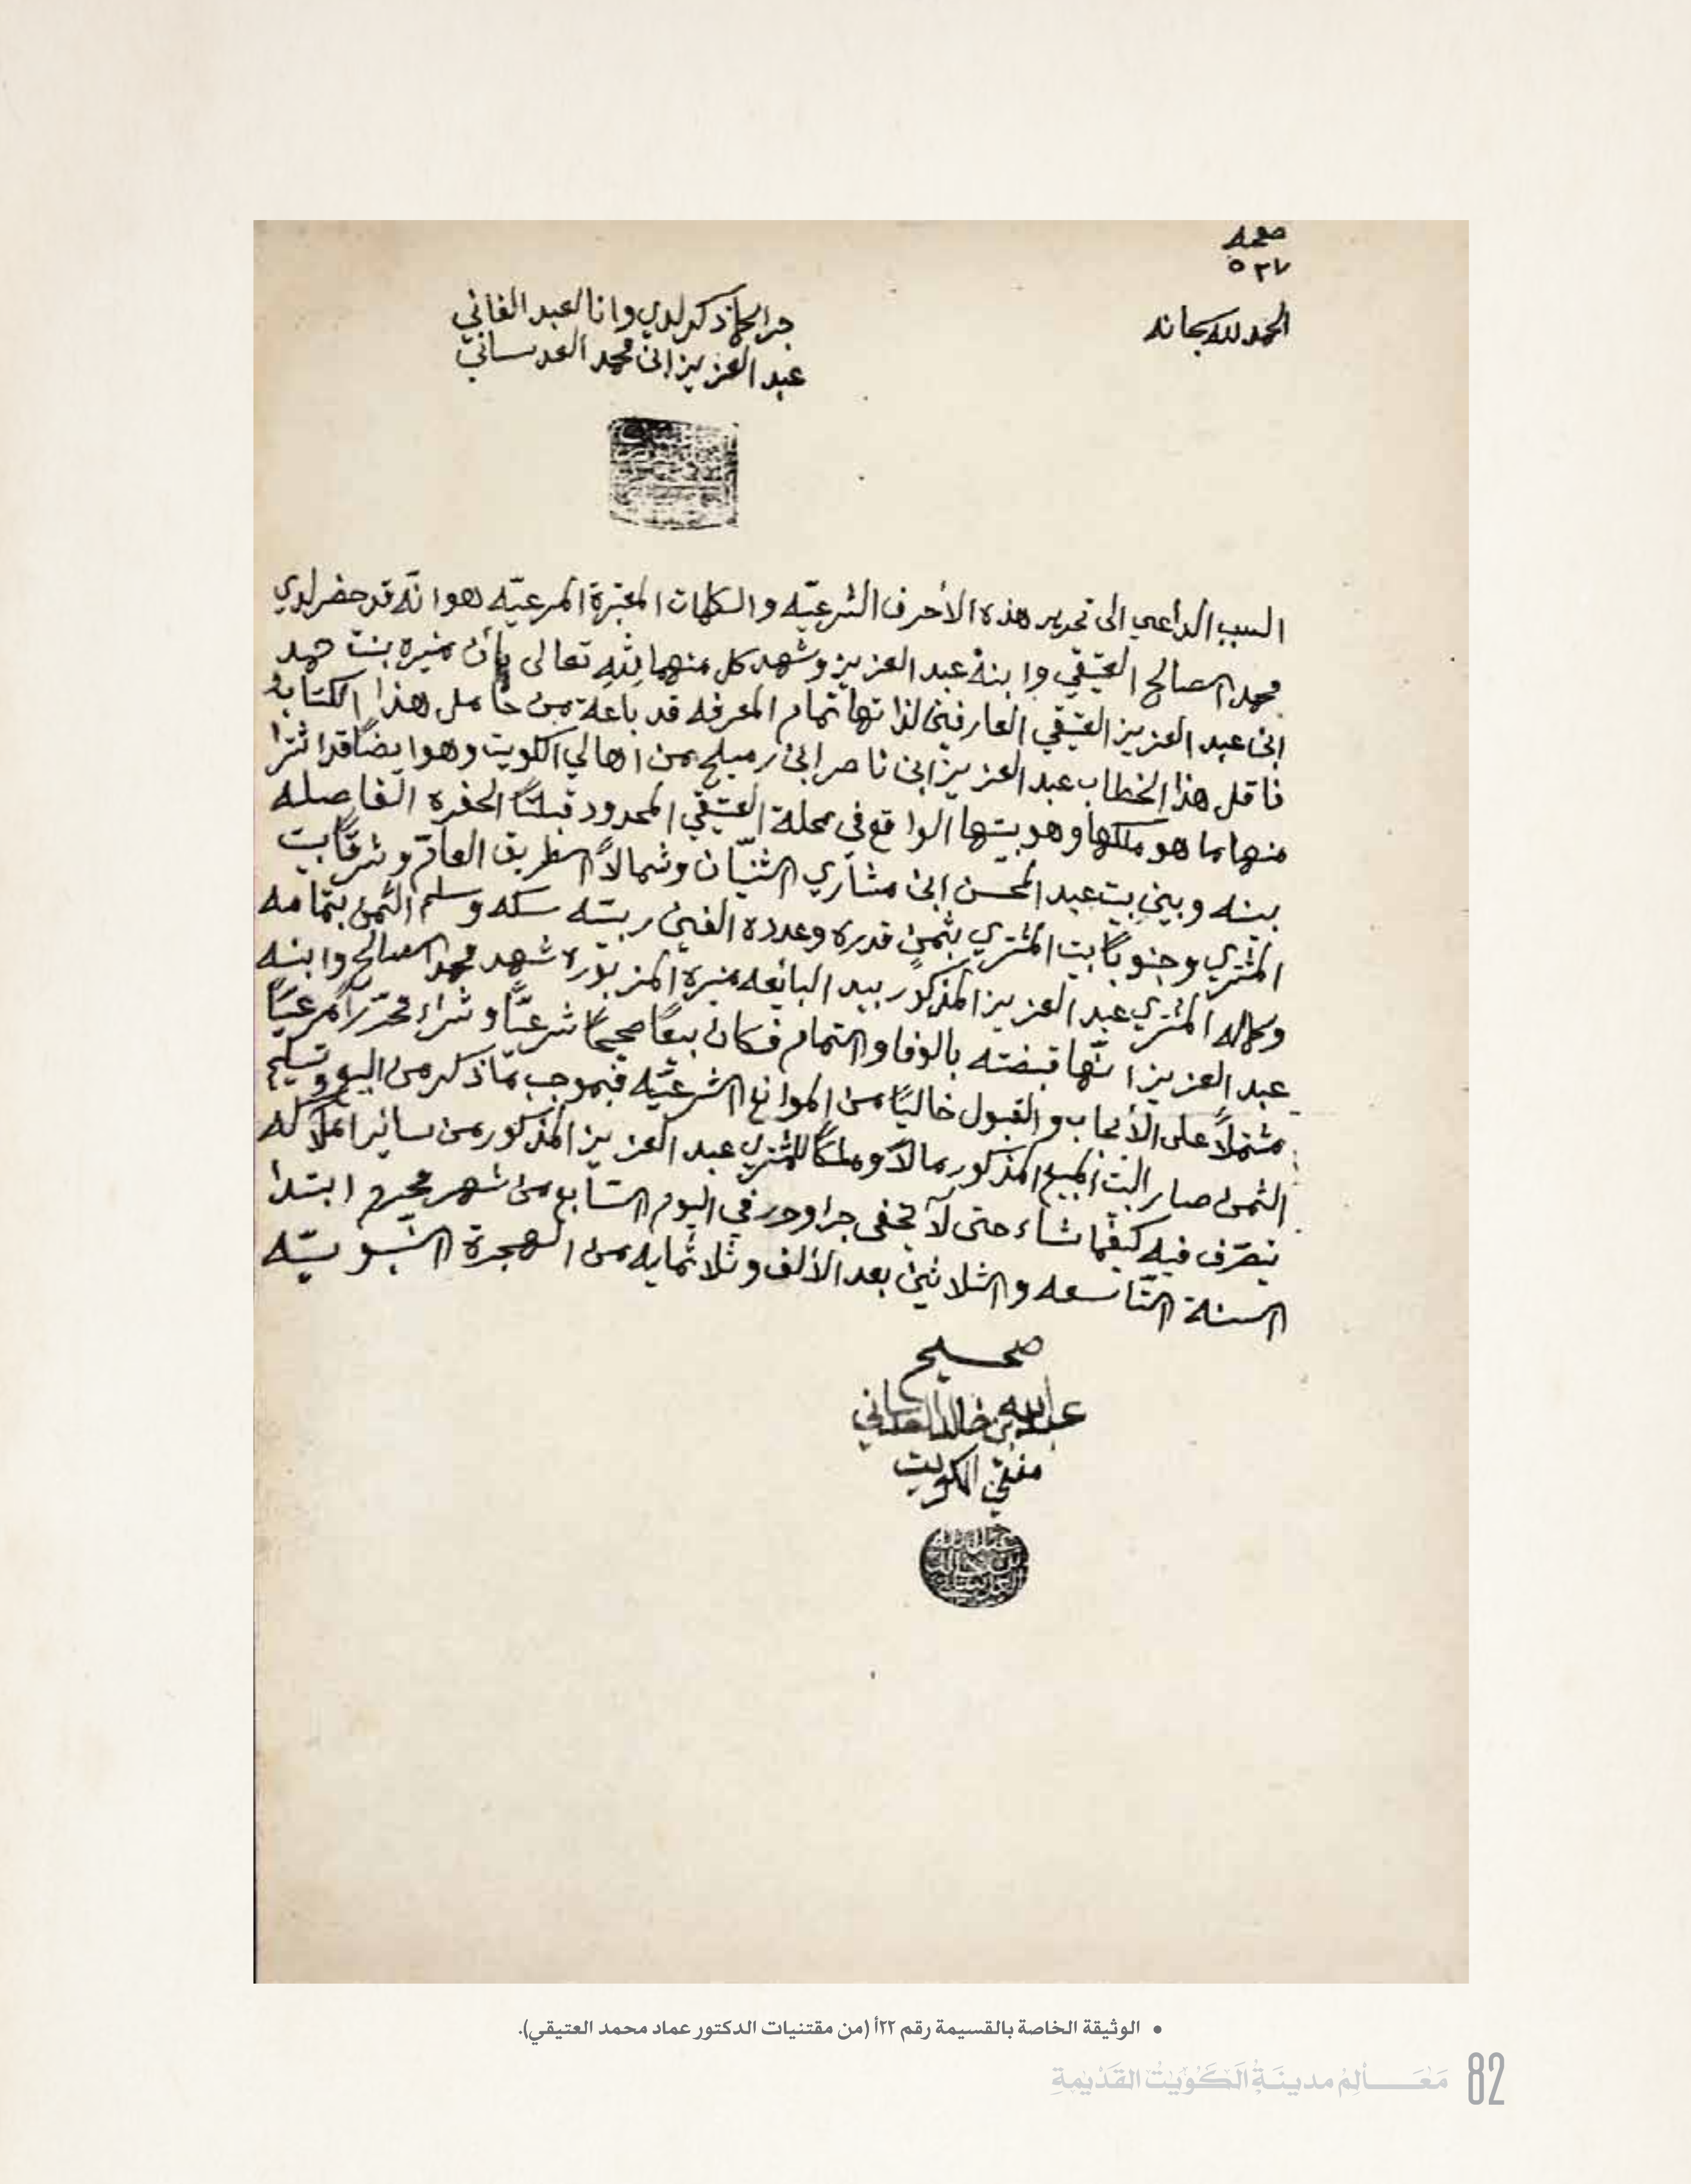 صفحه
٥٣٧
الحمد لله سبحانه
جرا كما ذكر لدي وانا العبد الفاني
عبد العزيز ابن محمد العدساني
السبب الداعي الى تحرير هذه الأحرف الشرعيّه والكلمات المعتبرة المرعيّه هو انّه قد حضر لدي
محمد الصالح العتيقي وابنه عبد العزيز وشهد كل منهما لله تعالى بأن منيره بنت حمد
ابن عبد العزيز العتيقي العارفين لذاتها تمام المعرفه قد باعة من حامل هذا الكتاب
ناقل هذا الخطاب عبد العزيز ابن ناصر ابن رميلح من اهالي الكويت وهو ايضًا قد اشترا
منها ما هو ملكها وهو بيتها الواقع في محلة العتيقي المحدود قبلتًا الحفره الفاصله
بينه وبين بيت عبد المحسن ابن مشاري الثنيّان وشمالاً الطريق العام وشرقًا بيت
المشتري وجنوبًا بيت المشتري بثمن قدره وعدده الفين ربيّه سكه وسلم الثمن بتمامه
وكماله المشتري عبد العزيز المذكور بيد البائعه منيرة المزبوره شهد محمد الصالح وابنه
عبد العزيز انّها قبضته بالوفا والتمام فكان بيعًا صحيحًا شرعيًّا وشراء محرّرًا مرعيًّا
مشتملاً على الأيجاب والقبول خاليًا من الموانع الشرعيّه فبموجب مّا ذكر من البيع وتسليم
الثمن صار البيت المبيع المذكور مالاً وملكًا للمشتري عبد العزيز المذكور من سائر املاكه
يتصرّف فيه كيفما شاء حتى لا يخفى جرا وحرر في اليوم السّابع من شهر محرم ابتدا
السنة التّاسعه والثلاثين بعد الألف وثلاثمايه من الهجرة النّبويّه
صحيح
عبدالله بن خالد العدساني
مفتي الكويت
• الوثيقة الخاصة بالقسيمة رقم ٢٢أ (من مقتنيات الدكتور عماد محمد العتيقي).
82 مَعَـــالِمُ مدينَـةِ الكُوَيْتْ القَدْيمَةِ